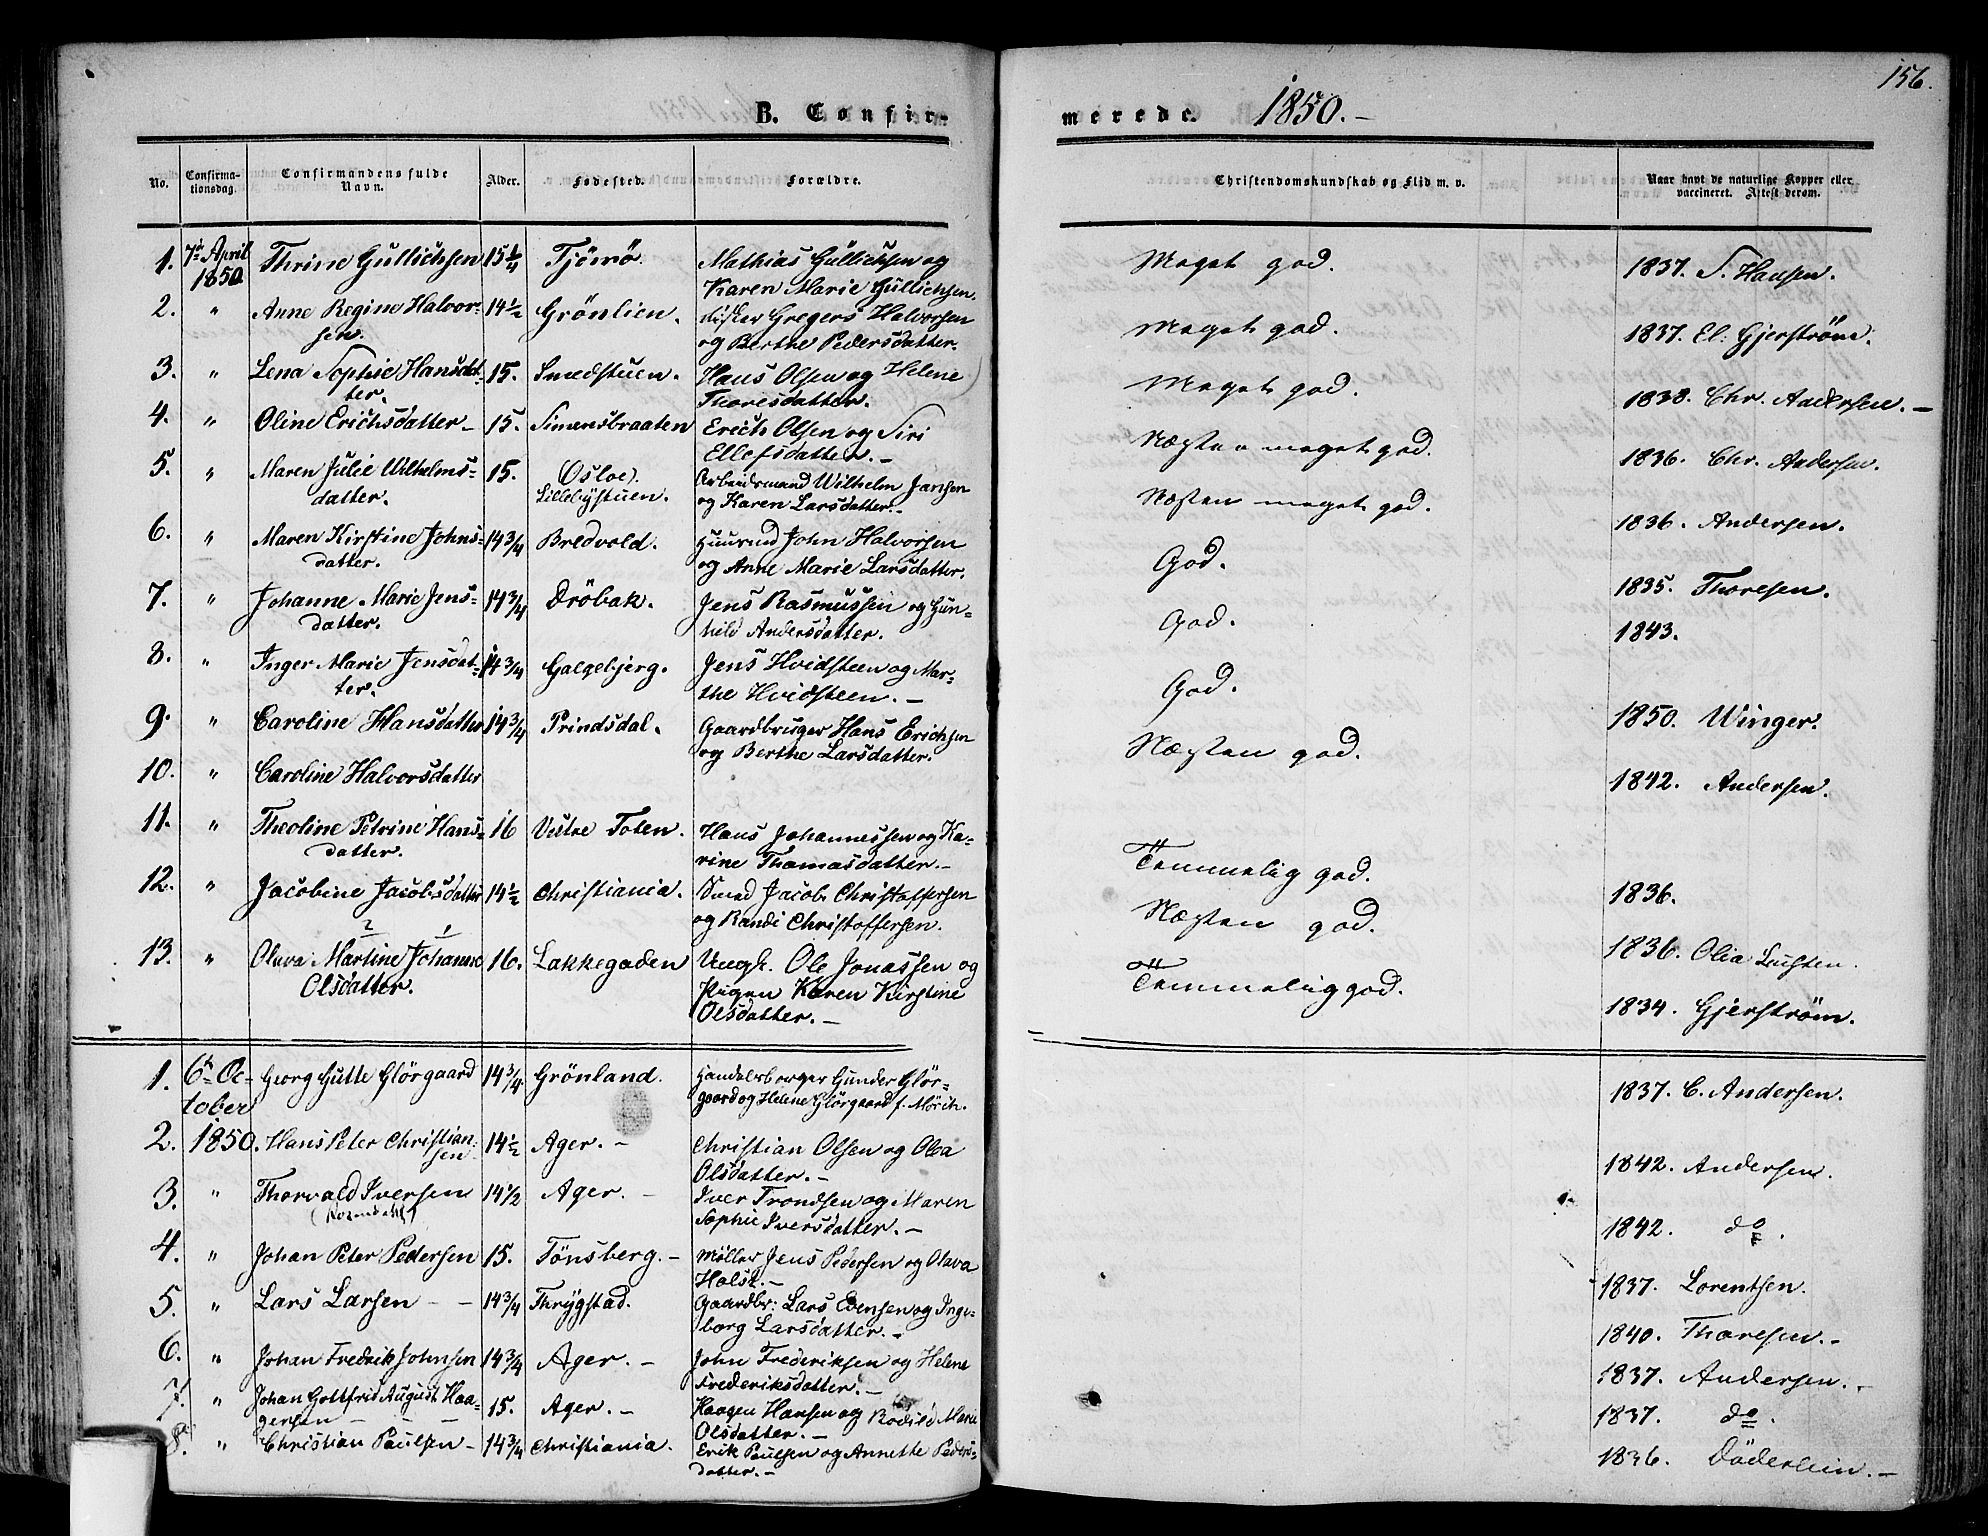 156.
B. Confir-
merede. 1850.-
No.
Confirma-
tionsdag.
Confirmandens fulde
Navn.
Alder.
Fødested.
Forældre.
Christendomskundskab og Flid m. v.
Naar havt de naturlige Kopper eller
vaccineret. Attest derom.
1. 7de April Thrine Gullichsen 15 1/4 Tjömö. Mathias Gullichsen og
1850 Karen Marie Gullichsen.
Meget god. 1837. S. Hansen.
2. " Anne Regine Halvor- 14 1/2 Grönlien. Gregers Halvorsen
sen. og Berthe Pedersdatter.
Meget god. 1837. El: Gjerström.
3. " Lena Sophie Hansdat- 15. Smedstuen. Hans Olsen og Helene
ter. Thoresdatter.
Meget god. 1838. Chr. Andersen.-
4. " Oline Erichsdatter- 15. Simensbraaten Erich Olsen og Siri
Ellefsdatter.-
Næsten meget god. 1836. Chr. Andersen.
5. " Maren Julie Wilhelms- 15. Osloe. Arbeidsmand Wilhelm Jansen
datter. Lillebystuen. og Karen Larsdatter.-
Næsten meget god. 1836. Andersen.
6. " Maren Kirstine Johns- 14 3/4 Bredvold. Huusmd John Halvorsen
datter. og Anne Marie Larsdatter.
God. 1835. Thoresen.
7. " Johanne Marie Jens- 14 3/4 Dröbak. Jens Rasmussen og Gun-
datter. hild Andersdatter.
God. 1843.
8. " Inger Marie Jensdat- 14 3/4 Galgebjerg. Jens Hvidsteen og Mar-
ter. the Hvidsteen.-
God. 1850. Winger.
9. " Caroline Hansdatter 14 3/4 Prindsdal. Gaardbruger Hans Erichsen
og Berthe Larsdatter.
Næsten god. 1842. Andersen.
10. " Caroline Halvorsdatter
11. " Theoline Petrine Hans- 16 Vestre Toten. Hans Johannessen og Ka-
datter. rine Thomasdatter.-
Temmelig god. 1836.
12. " Jacobine Jacobsdatter 14 1/2 Christiania. Smed Jacob Christoffersen
og Randi Christoffersen.
Næsten god. 1836. Olia
2 1
13. " Olava Martine Johanne 16. Lakkegaden Ungk. Ole Jonassen og
Olsdatter. Pigen Karen Kirstine
Olsdatter.-
Temmelig god. 1834. Gjerström.
1. 6te Oc- Georg Gutte Glörgaard 14 3/4 Grönland. Handelsborger Gunder Glör-
tober gaard og Helene Glörgaard f. Mörch.
1837. C. Andersen.
2. 1850. Hans Peter Christian- 14 1/2 Ager.- Christian Olsen og Olea
sen Olsdatter.-
1842. Andersen.
3. " Thorvald Iversen 14 1/2 Ager.- Iver Trondsen og Maren
Sophie Iversdatter.-
1842. do.
4. " Johan Peter Pedersen 15. Tönsberg.- Möller Jens Pedersen og Olava
Holst.-
1837. Lorentsen.
5. " Lars Larsen - - 14 3/4 Thrygstad. Gaardbr: Lars Evensen og Inge-
borg Larsdatter.-
1840. Thoresen.-
6. " Johan Fredrik Johnsen 14 3/4 Ager.- John Frederiksen og Helene
Frederiksdatter.-
1837. Andersen.-
7. " Johan Gottfried August Haa- 15. Ager.- Haagen Hansen og Bodild Marie
gensen - - - Olsdatter.-
1837. do.
8. " Christian Paulsen- 14 3/4 Christiania. Erik Paulsen og Annette Peders-
datter.-
1836. Döderlein.-